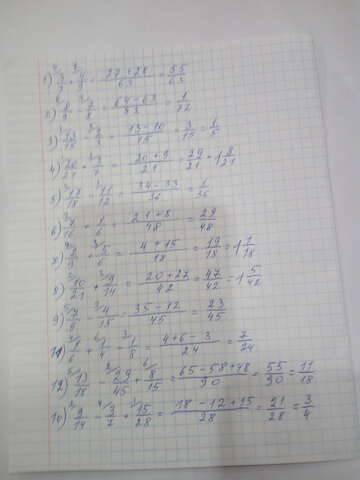 1) 3/7 + 4/9 = 27+28/63 = 55/63
2) 8/9 - 7/8 = 64-63/72 = 1/72
3) 13/15 - 2/3 = 13-10/15 = 3/15 = 1/5
4) 20/21 + 3/7 = 20+9/21 = 29/21 = 1 8/21
5) 17/18 - 11/12 = 34-33/36 = 1/36
6) 7/16 + 1/6 = 21+8/48 = 29/48
7) 2/9 + 5/6 = 4+15/18 = 19/18 = 1 1/18
8) 10/21 + 9/14 = 20+27/42 = 47/42 = 1 5/42
9) 7/9 - 4/15 = 35-12/45 = 23/45
11) 1/6 + 1/4 - 1/8 = 4+6-3/24 = 7/24
12) 13/18 - 29/45 + 8/15 = 65-58+48/90 = 55/90 = 11/18
10) 9/14 - 3/7 + 15/28 = 18-12+15/28 = 21/28 = 3/4